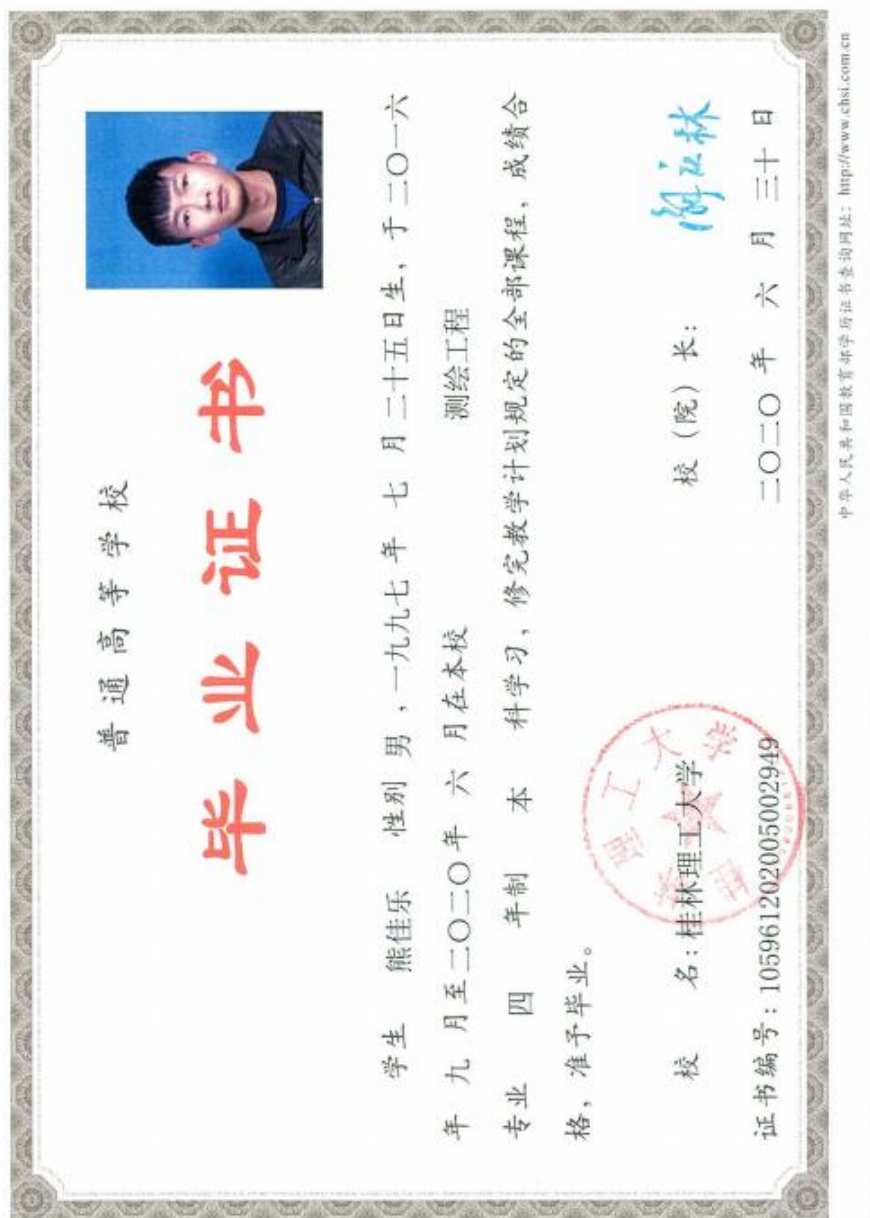 普通高等学校
毕业证书
学生 熊佳乐 性别 男 ,一九九七 年 七 月 二十五日生，于 二〇一六
年 九 月至 二〇二〇 年 六 月在本校 测绘工程
专业 四 年制 本 科学习，修完教学计划规定的全部课程，成绩合
格，准予毕业。
校 名: 桂林理工大学 校（院）长:
桂林理工大学
证书编号: 105961202005002949 二〇二〇 年 六 月 三十 日
中华人民共和国教育部学历证书查询网址: http://www.chsi.com.cn